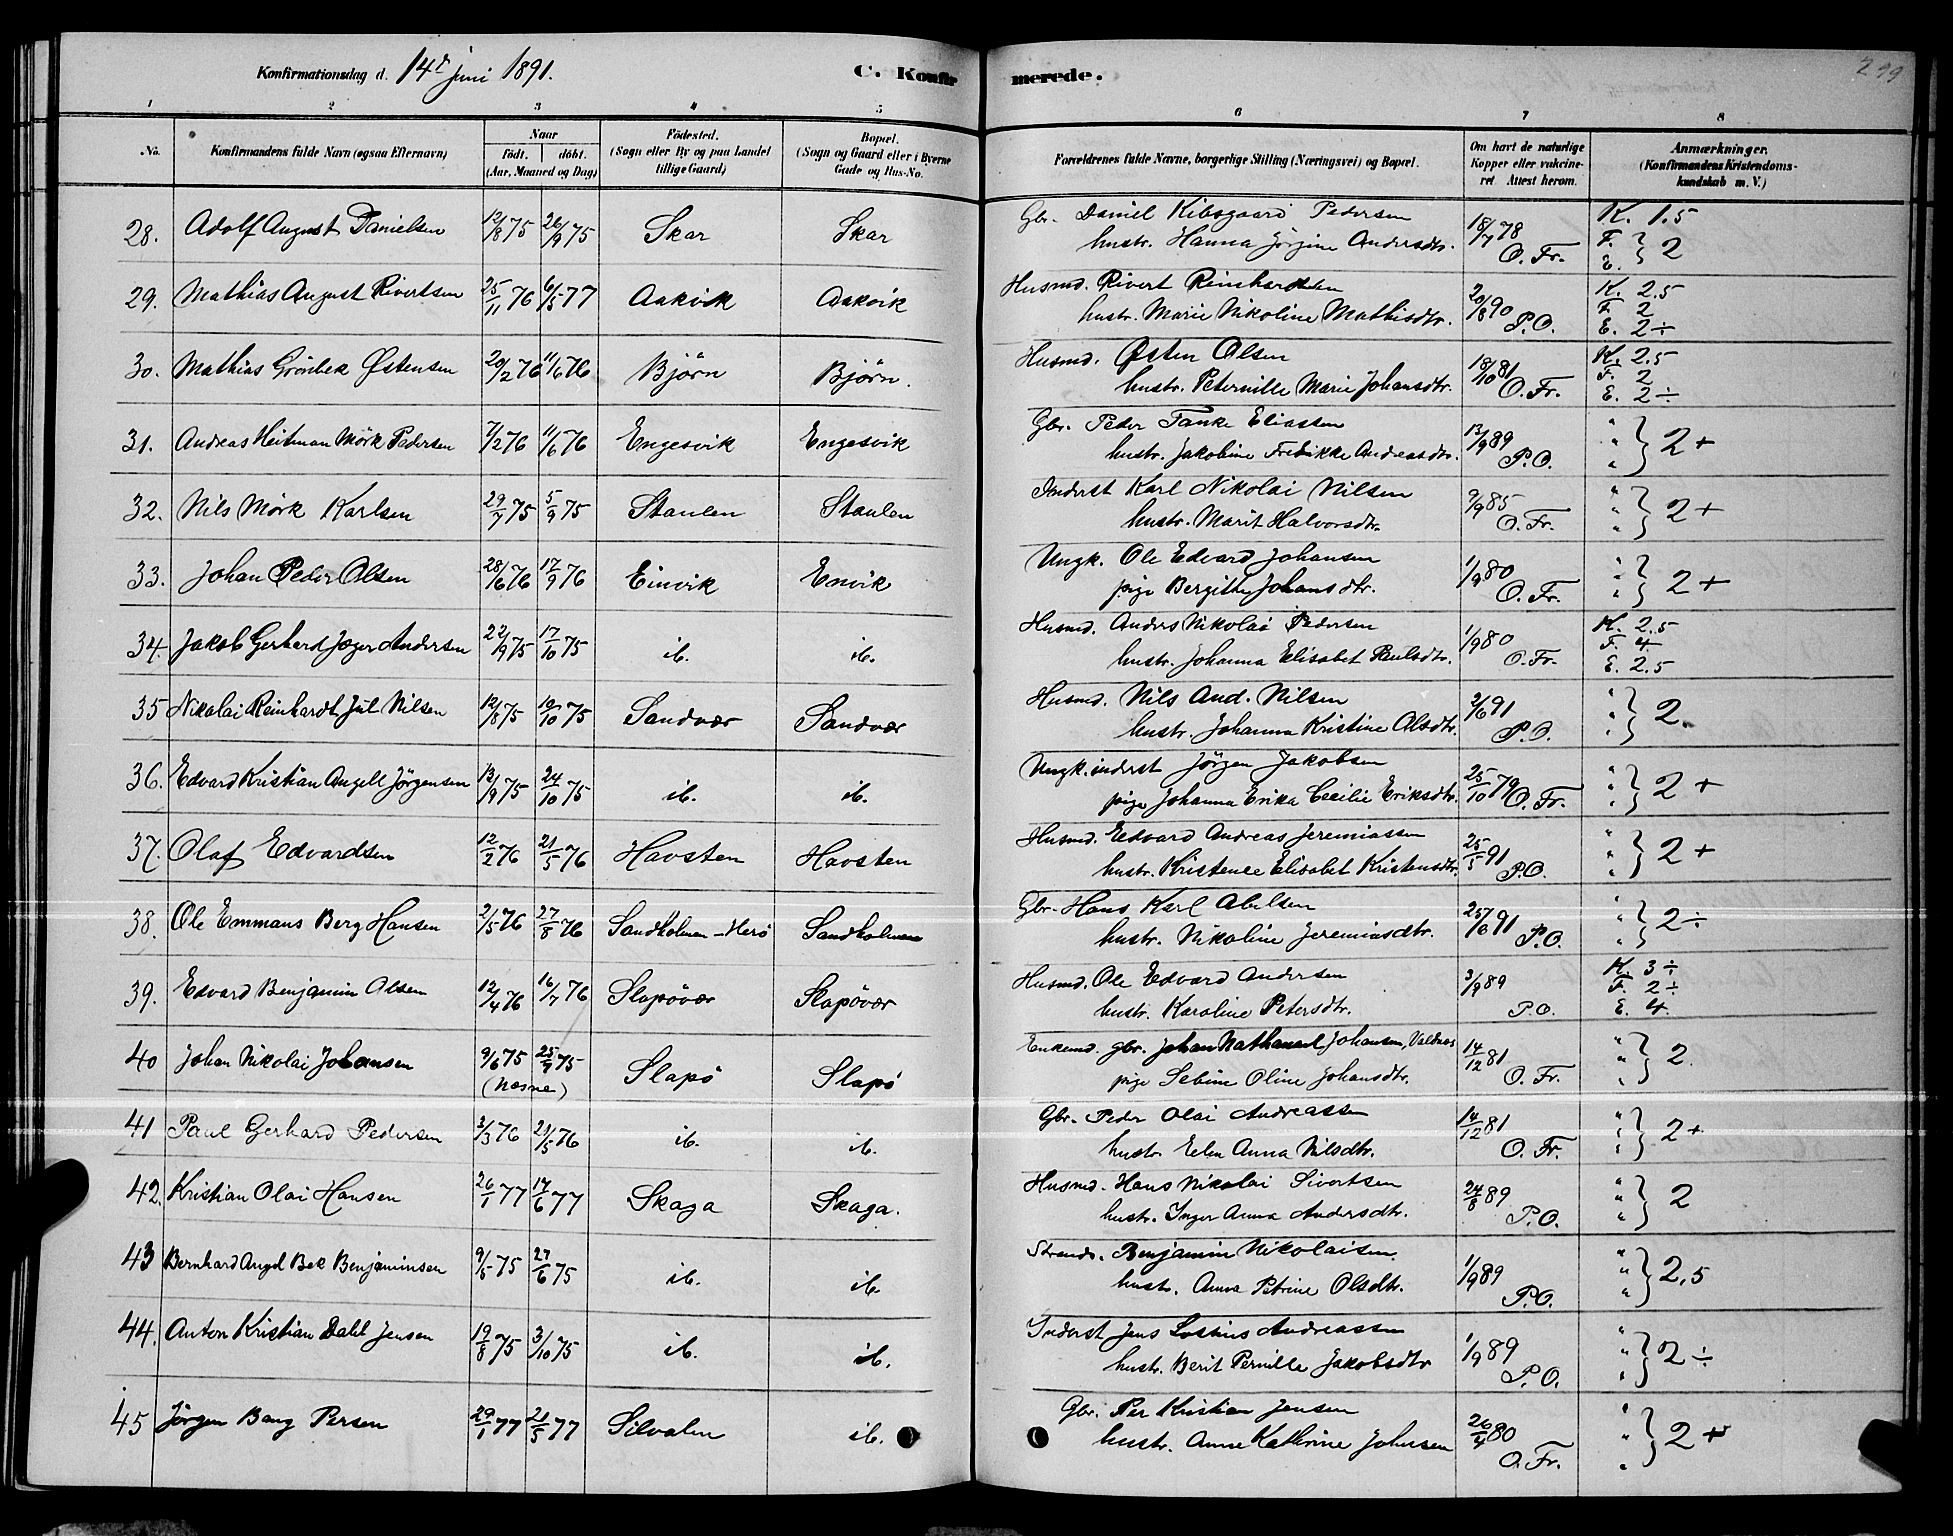 Konfirmationsdag d. 14de juni 1891.
C. Konfirmerede.
299
1 2 3 4 5 6 7 8
No. Konfirmandens fulde Navn (ogsaa Efternavn) Naar födt. döbt. (Aar, Maaned og Dag) Födested. (Sogn eller By og paa Landet tillige Gaard) Bopæl. (Sogn og Gaard eller i Byerne Gade og Hus-No. Forældrenes fulde Navne, borgerlige Stilling (Næringsvei) og Bopæl. Om havt de naturlige Kopper eller vakcineret Attest herom. Anmærkninger. (Konfirmandens Kristendomskundskab m. V.)
28. Adolf August Danielsen 12/8 75 26/9 75 Skar Skar Gbr. Daniel Kibsgaard Pedersen 18/7 78 K. 1.5
hustr. Hanna Jørgine Andersdtr. O. Fr. F. E. } 2
29. Mathias August Rivertsen 25/11 76 6/5 77 Aakvik Aakvik Husmd. Rivert Reinhardtsen 20/8 90 K. 2.5 F. 2
hustr. Marie Nikoline Mathisdtr. P.O. E. 2÷
30. Mathias Grönbek Østensen 20/2 76 11/6 76 Björn Björn. Husmd. Østen Olsen 18/10 81 K. 2.5 F. 2
hustr. Peternille Marie Johansdtr. O. Fr. E. 2÷
31. Andreas Heitman Mörk Pedersen 7/2 76 11/6 76 Engesvik Engesvik Gbr. Peder Tanke Eliassen 13/9 89 " " " } 2+
hustr. Jakobine Fredrikke Andreasdtr. P.O.
32. Nils Mörk Karlsen 29/7 75 5/9 75 Staulen Staulen Inderst Karl Nikolai Nilsen 9/9 85 " " " } 2+
hustr. Marit Halvorsdtr. O. Fr.
33. Johan Peder Olsen 28/6 76 17/9 76 Einvik Envik Ungk. Ole Edvard Johansen 1/9 80 " " " } 2+
pige Bergithe Johansdtr. O. Fr.
34. Jakob Gerhard Jæger Andersen 22/9 75 17/10 75 ib. ib. Husmd. Anders Nikolai Pedersen 1/9 80 K. 2.5 F. 4
hustr. Johanna Elisabet Paulsdtr. O. Fr. E. 2.5
35 Nikolai Reinhardt Jul Nilsen 12/8 75 10/10 75 Sandvær Sandvær Husmd. Nils And. Nilsen 2/6 91 " " " } 2.
hustr. Johanna Kristine Olsdtr. P.O.
36. Edvard Kristian Angell Jörgensen 13/9 75 24/10 75 ib. ib. Ungk. inderst Jörgen Jakobsen 25/10 79 " " " } 2+
pige Johanna Erika Cecilie Eriksdtr. O. Fr.
37. Olaf Edvardsen 12/2 76 21/5 76 Havsten Havsten Husmd. Edvard Andreas Jeremiassen 25/5 91 " " " } 2+
hustr. Kristence Elisabet Kristensdtr. P.O.
38. Ole Emmaus Berg Hansen 2/5 76 27/8 76 Sandholmen - Herö Sandholmen Gbr. Hans Karl Abelsen 91 " " " } 2÷
hustr. Nikoline Jeremiasdtr. P.O.
39. Edvard Benjamin Olsen 12/4 76 16/7 76 Slapövær Slapövær Husmd. Ole Edvard Andersen 3/9 89 K. 3÷ F. 2÷
hustr. Karoline Petersdtr. P.O. E. 4.
40 Johan Nikolai Johansen 9/6 75 25/7 75 (Næsne) Slapö Slapö Enkemd. gbr. Johan Nathanael Johansen, Valdnes 14/12 81 " " " } 2.
pige Sebine Oline Johansdtr. O. Fr.
41 Paul Gerhard Pedersen 3/3 76 21/5 76 ib. ib. Gbr. Peder Olai Andreassen 14/12 81 " " " } 2+
hustr. Elen Anna Nilsdtr. O. Fr.
42. Kristian Olai Hansen 26/1 77 17/6 77 Skaga Skaga. Husmd. Hans Nikolai Sivertsen 24/8 89 " " " } 2
hustr. Inger Anna Andersdtr. P.O.
43 Bernhard Angel Bek Benjaminsen 9/5 75 27/6 75 ib. ib. Strands. Benjamin Nikolaisen 1/9 89 " " " } 2,5
hustr. Anna Petrine Olsdtr. P.O.
44. Anton Kristian Dahl Jensen 19/8 75 3/10 75 ib. ib. Inderst Jens Andreassen 1/9 89 " " " } 2÷
hustr. Berit Pernille Jakobsdtr P.O.
45 Jörgen Bang Persen 29/1 77 21/5 77 Silvalen ib. Gbr. Per Kristian Jensen 26/4 80 " " " } 2+
hustr. Anne Kathrine Johnsen O. Fr.